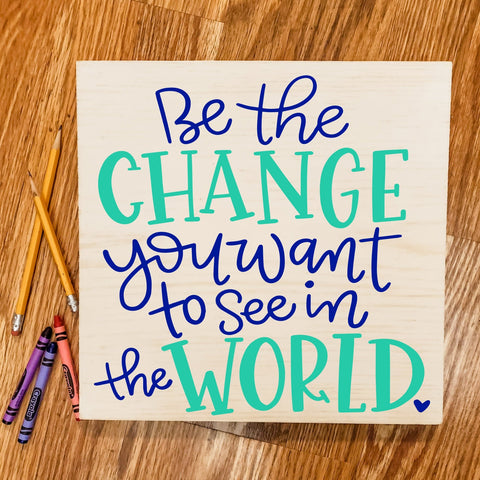 Be the
CHANGE
you want
to see in
the WORLD.
Crayola
Crayola